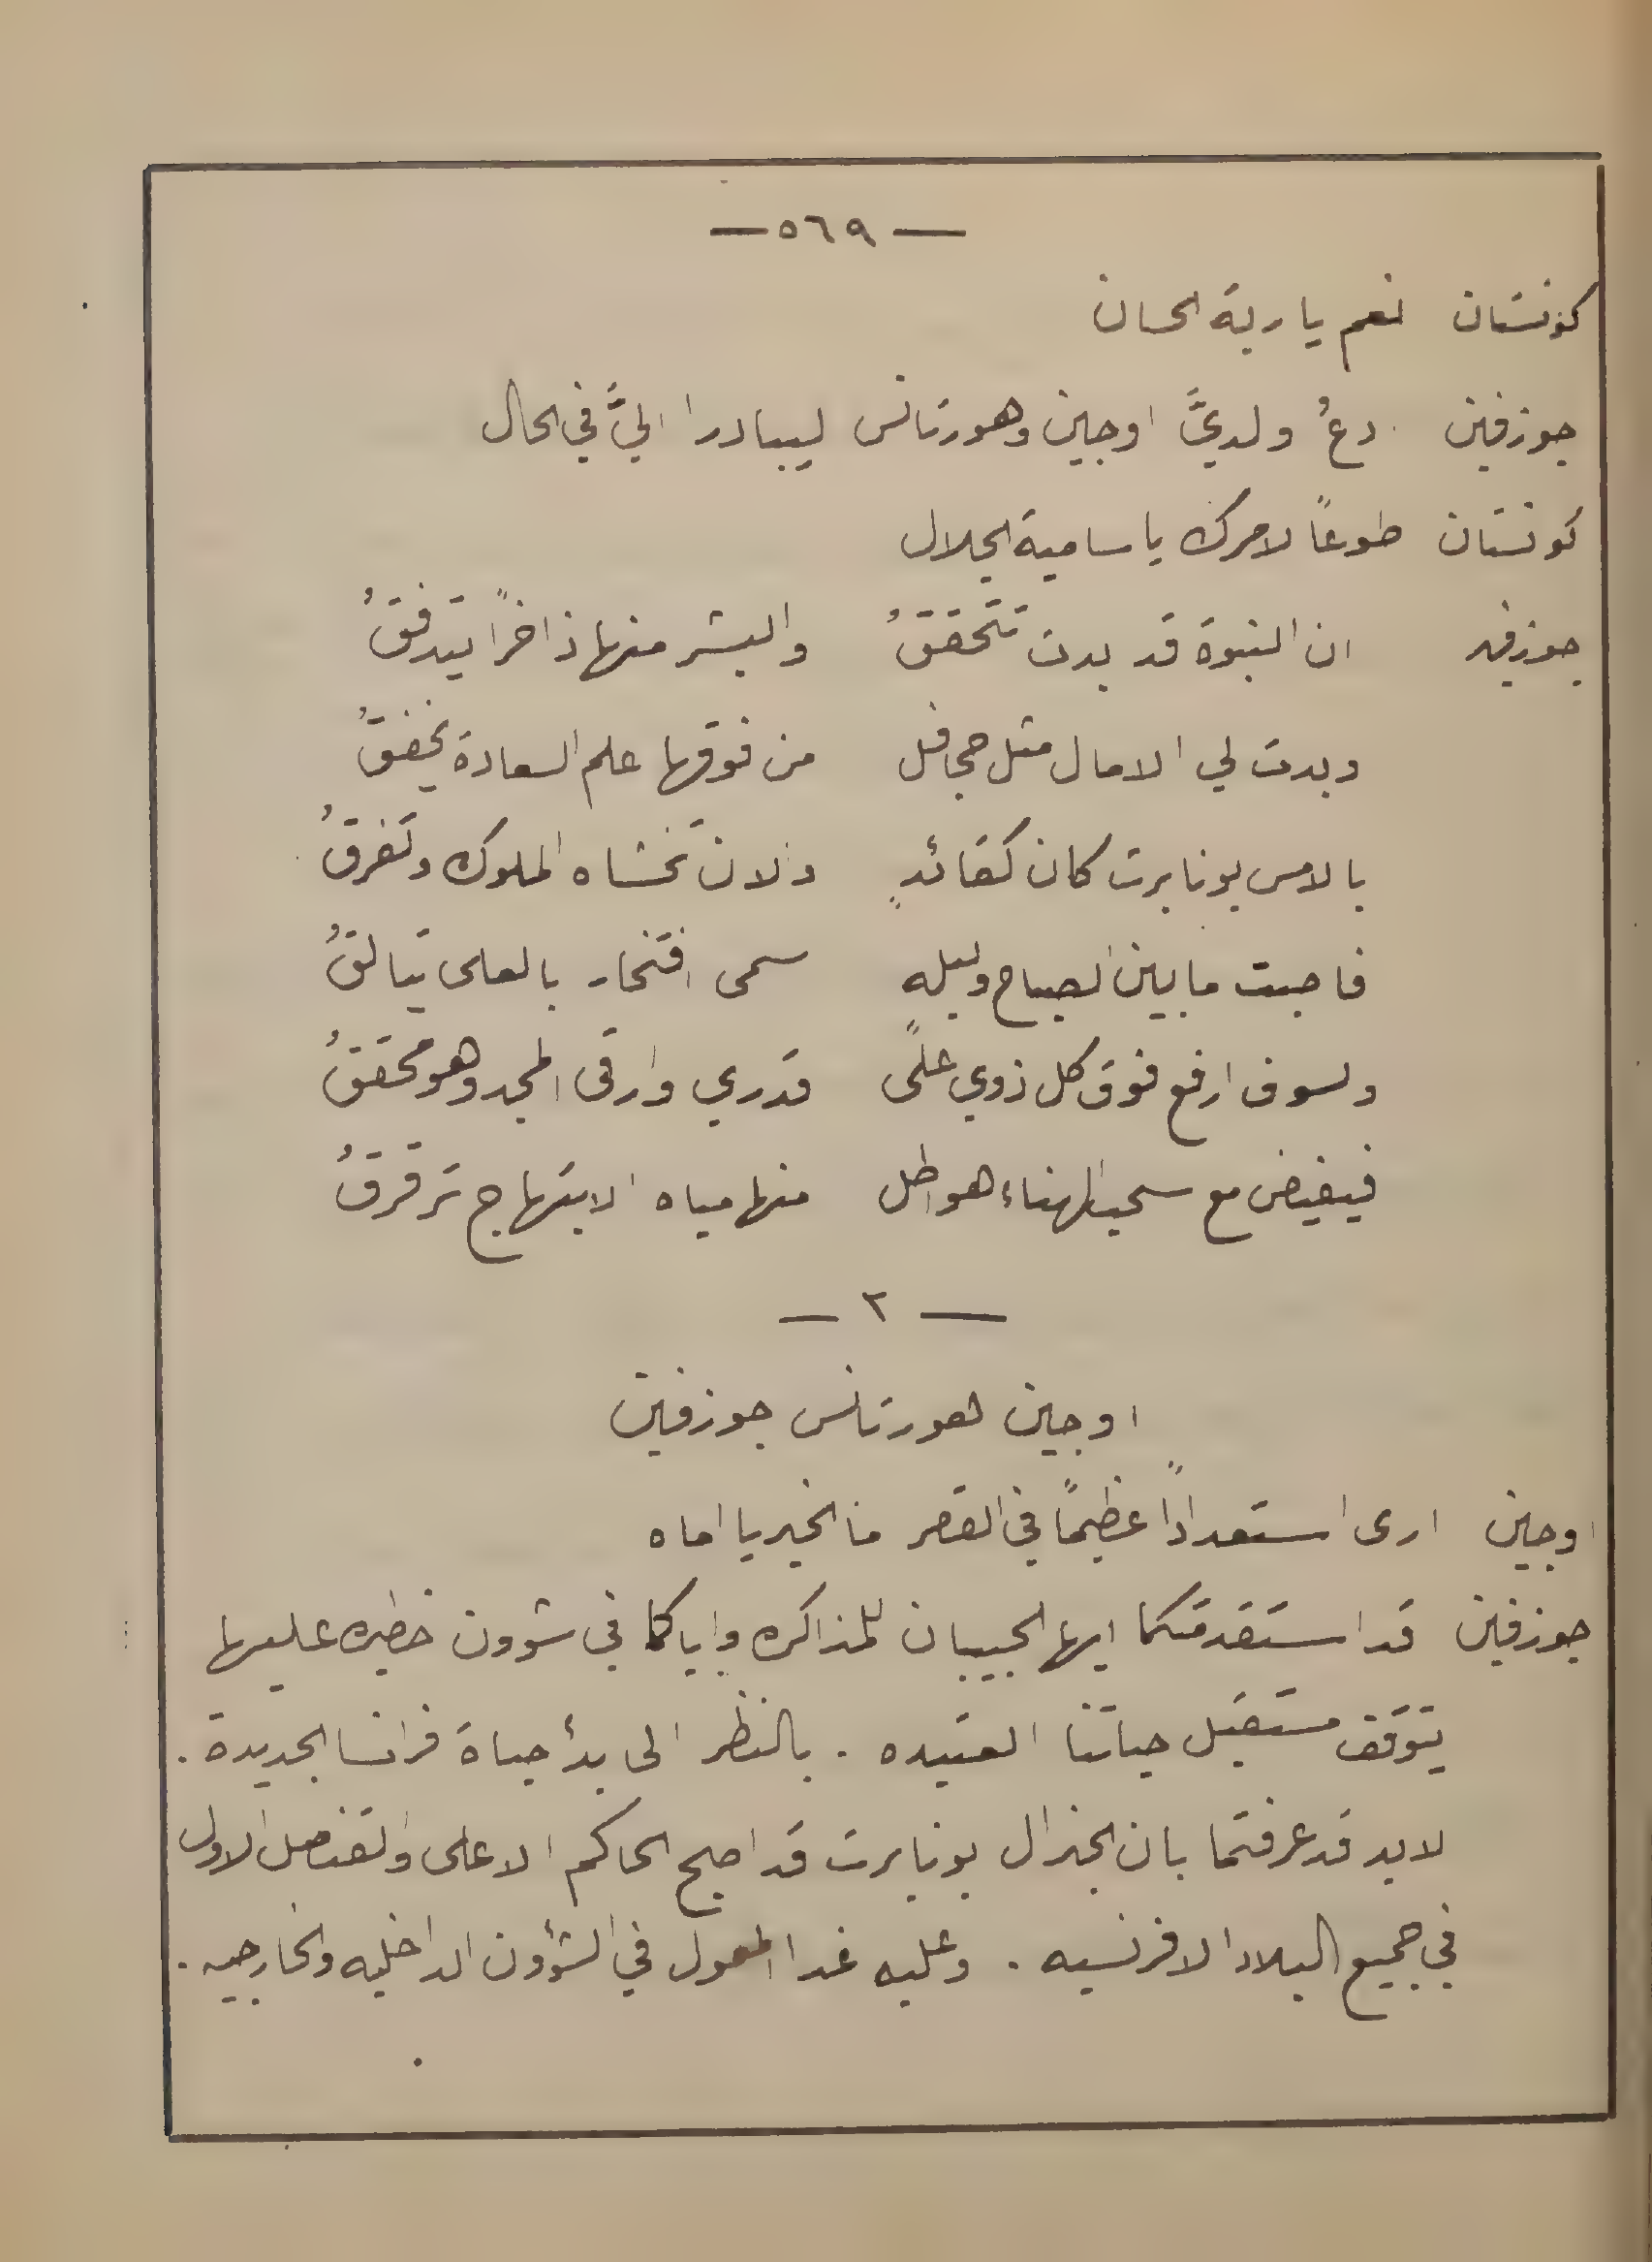 — ٥٦٩ —
كونستان نعم يا ربة الحسان
جوزفين . دعُ ولديَّ اوجين وهورتانس ليبادرا اليَّ في الحال
كونستان طوعاً لامرك يا سامية الجلال
جوزفين ان النبوة قد بدت تتحققُ والبشر منها ذاخراً يتدفقُ
وبدت لي الامال مثل جحافل من فوقها علم السعادة يخفقُ
بالامس بونابرت كان كقائدٍ والان تخشاه الملوك وتفرقُ
فاصبت ما بين الصباح وليله سمى افتخار بالعلى يتالقُ
ولسوف ارفع فوق كل ذوي علًى قدري وارقى المجد وهو محققُ
فيفيض مع سحب الهناء هواطل منها مياه الابتهاج ترقرقُ
— ٢ —
اوجين هورتانس جوزفين
اوجين ارى استعداداً عظيماً في القصر ما الخبر يا اماه
جوزفين قد استقدمتكما ايها الحبيبان للمذاكره واياكما في شوون خطيره عليها
يتوقف مستقبل حياتنا العتيده . بالنظر الى بدأ حياة فرانسا الجديدة .
لابد قد عرفتما بان الجنرال بونابرت قد اصبح الحاكم الاعلى والقنصل الاول
في جميع البلاد الافرنسيه . وعليه غدا المعول في الشؤون الداخليه والخارجيه .